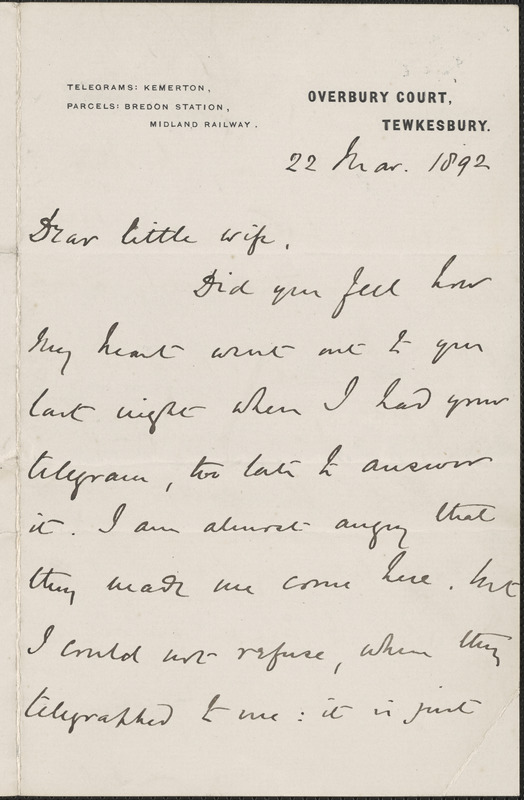 TELEGRAMS: KEMERTON,
PARCELS: BREDON STATION,
MIDLAND RAILWAY.
OVERBURY COURT,
TEWKESBURY.
22 Mar. 1892
Dear little wife,
Did you feel how
my heart went out to you
last night when I had your
telegram, too late to answer
it. I am almost angry that
they made me come here. but
I could not refuse, when they
telegraphed to me: it is just